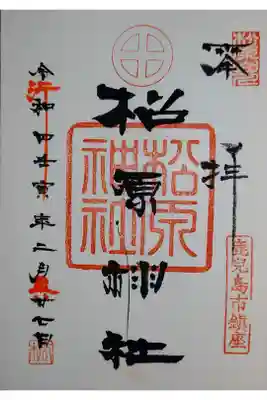 奉拝
鹿児島市鎮座
松原神社
松原
神社
令和四壬寅年二月廿七日